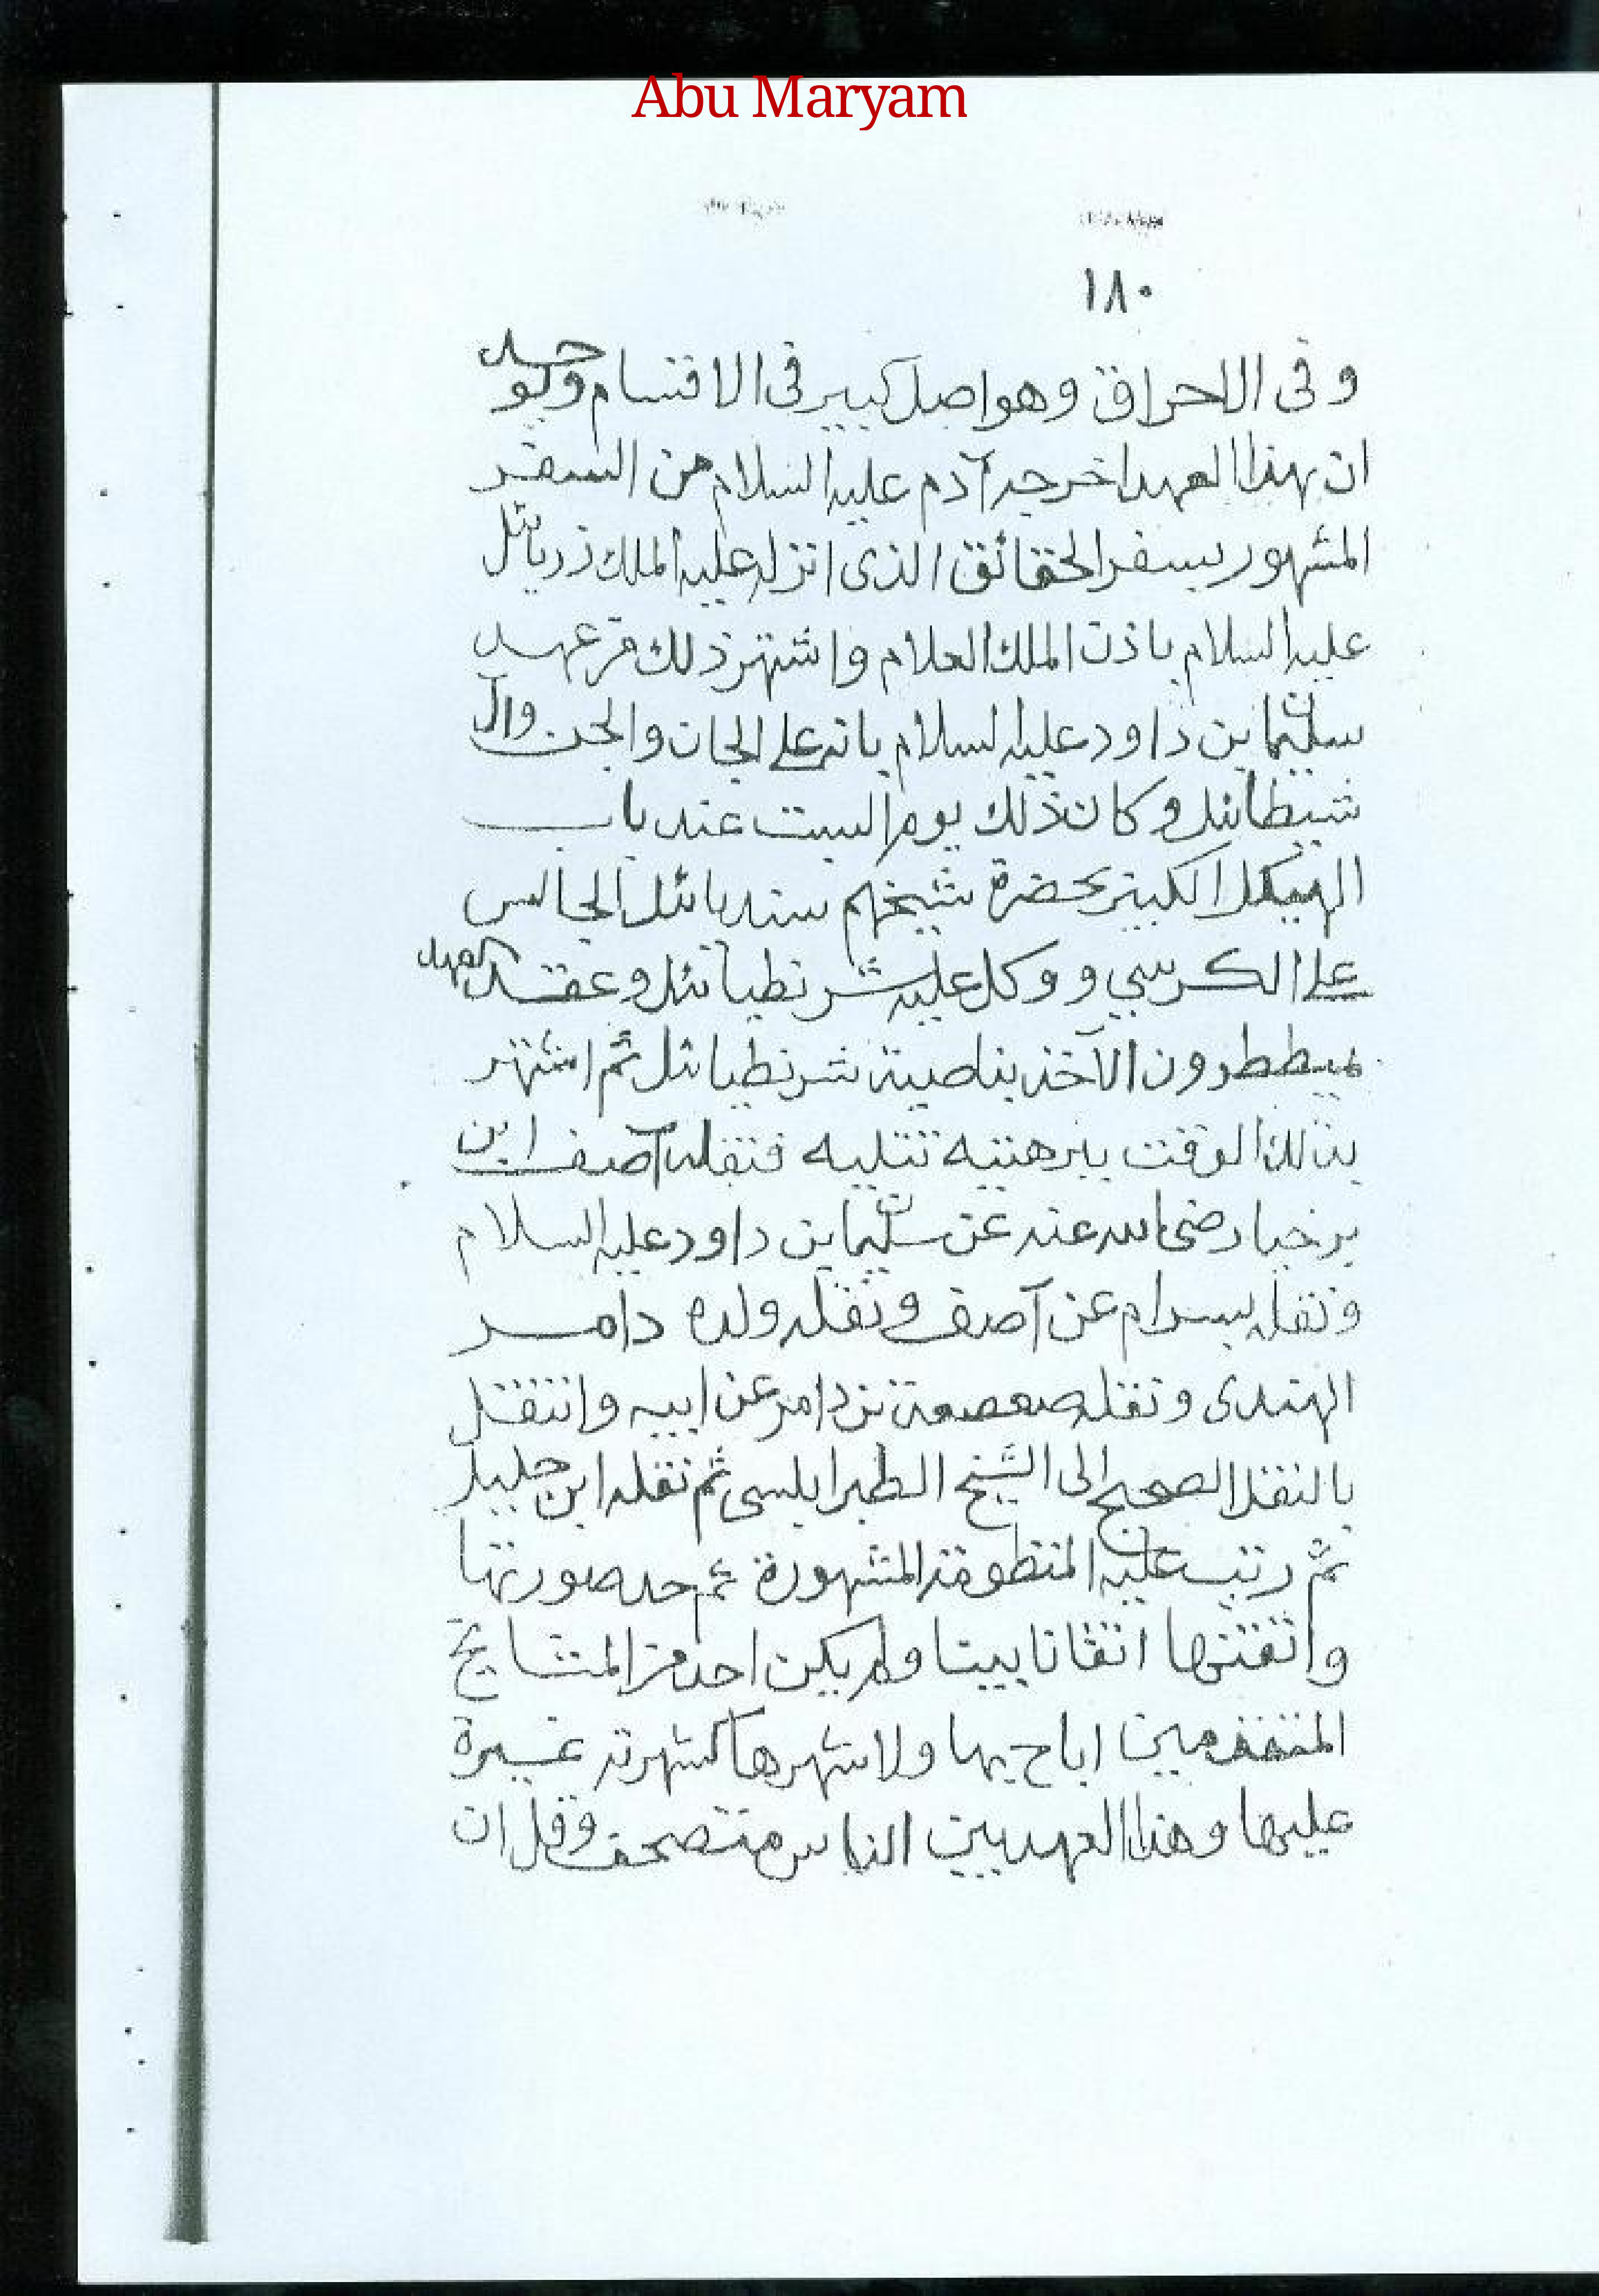 Abu Maryam
١٨٠
و فى الاحراق وهو اصل كبير فى الاقسام ولو حد
ان بهذا العهد اخرجه آدم عليه السلام من السفر
المشهور بسفر الحقائق الذى انزله عليه الملك زريائل
عليه السلام باذن الملك العلام واشتهر ذلك فى عهد
سليمان بن داود عليه السلام بانه على الجان والجن وال
شيطانيل وكان ذلك يوم السبت عند باب
الهيكل الكبير بحضرة شيخهم سندبائل الجالس
على الكرسي و وكل عليه شرنطيائل وعقد العهد
ميططرون الآخذ بناصية شرنطيائل ثم اشتهر
بذلك الوقت ببرهتيه تتليه فنقله آصف ابن
برخيا رضى الله عنه عن سليمان بن داود عليه السلام
ونقله بسرام عن آصف ونقله ولده دامر
الهندى ونقله صعصعة بن دامر عن ابيه وانتقل
بالنقل الصحيح الى الشيخ الطبرابلسى ثم نقله ابن جليل
ثم رتب عليه المنظومة المشهورة ثم حد صورتها
واتقنها اتقانا بينا ولم يكن احد من المشايخ
المتقدمين اباح بها ولا شهرها كشهرته غيرة
عليها وهذا العهد بين الناس متصحف وقل ان